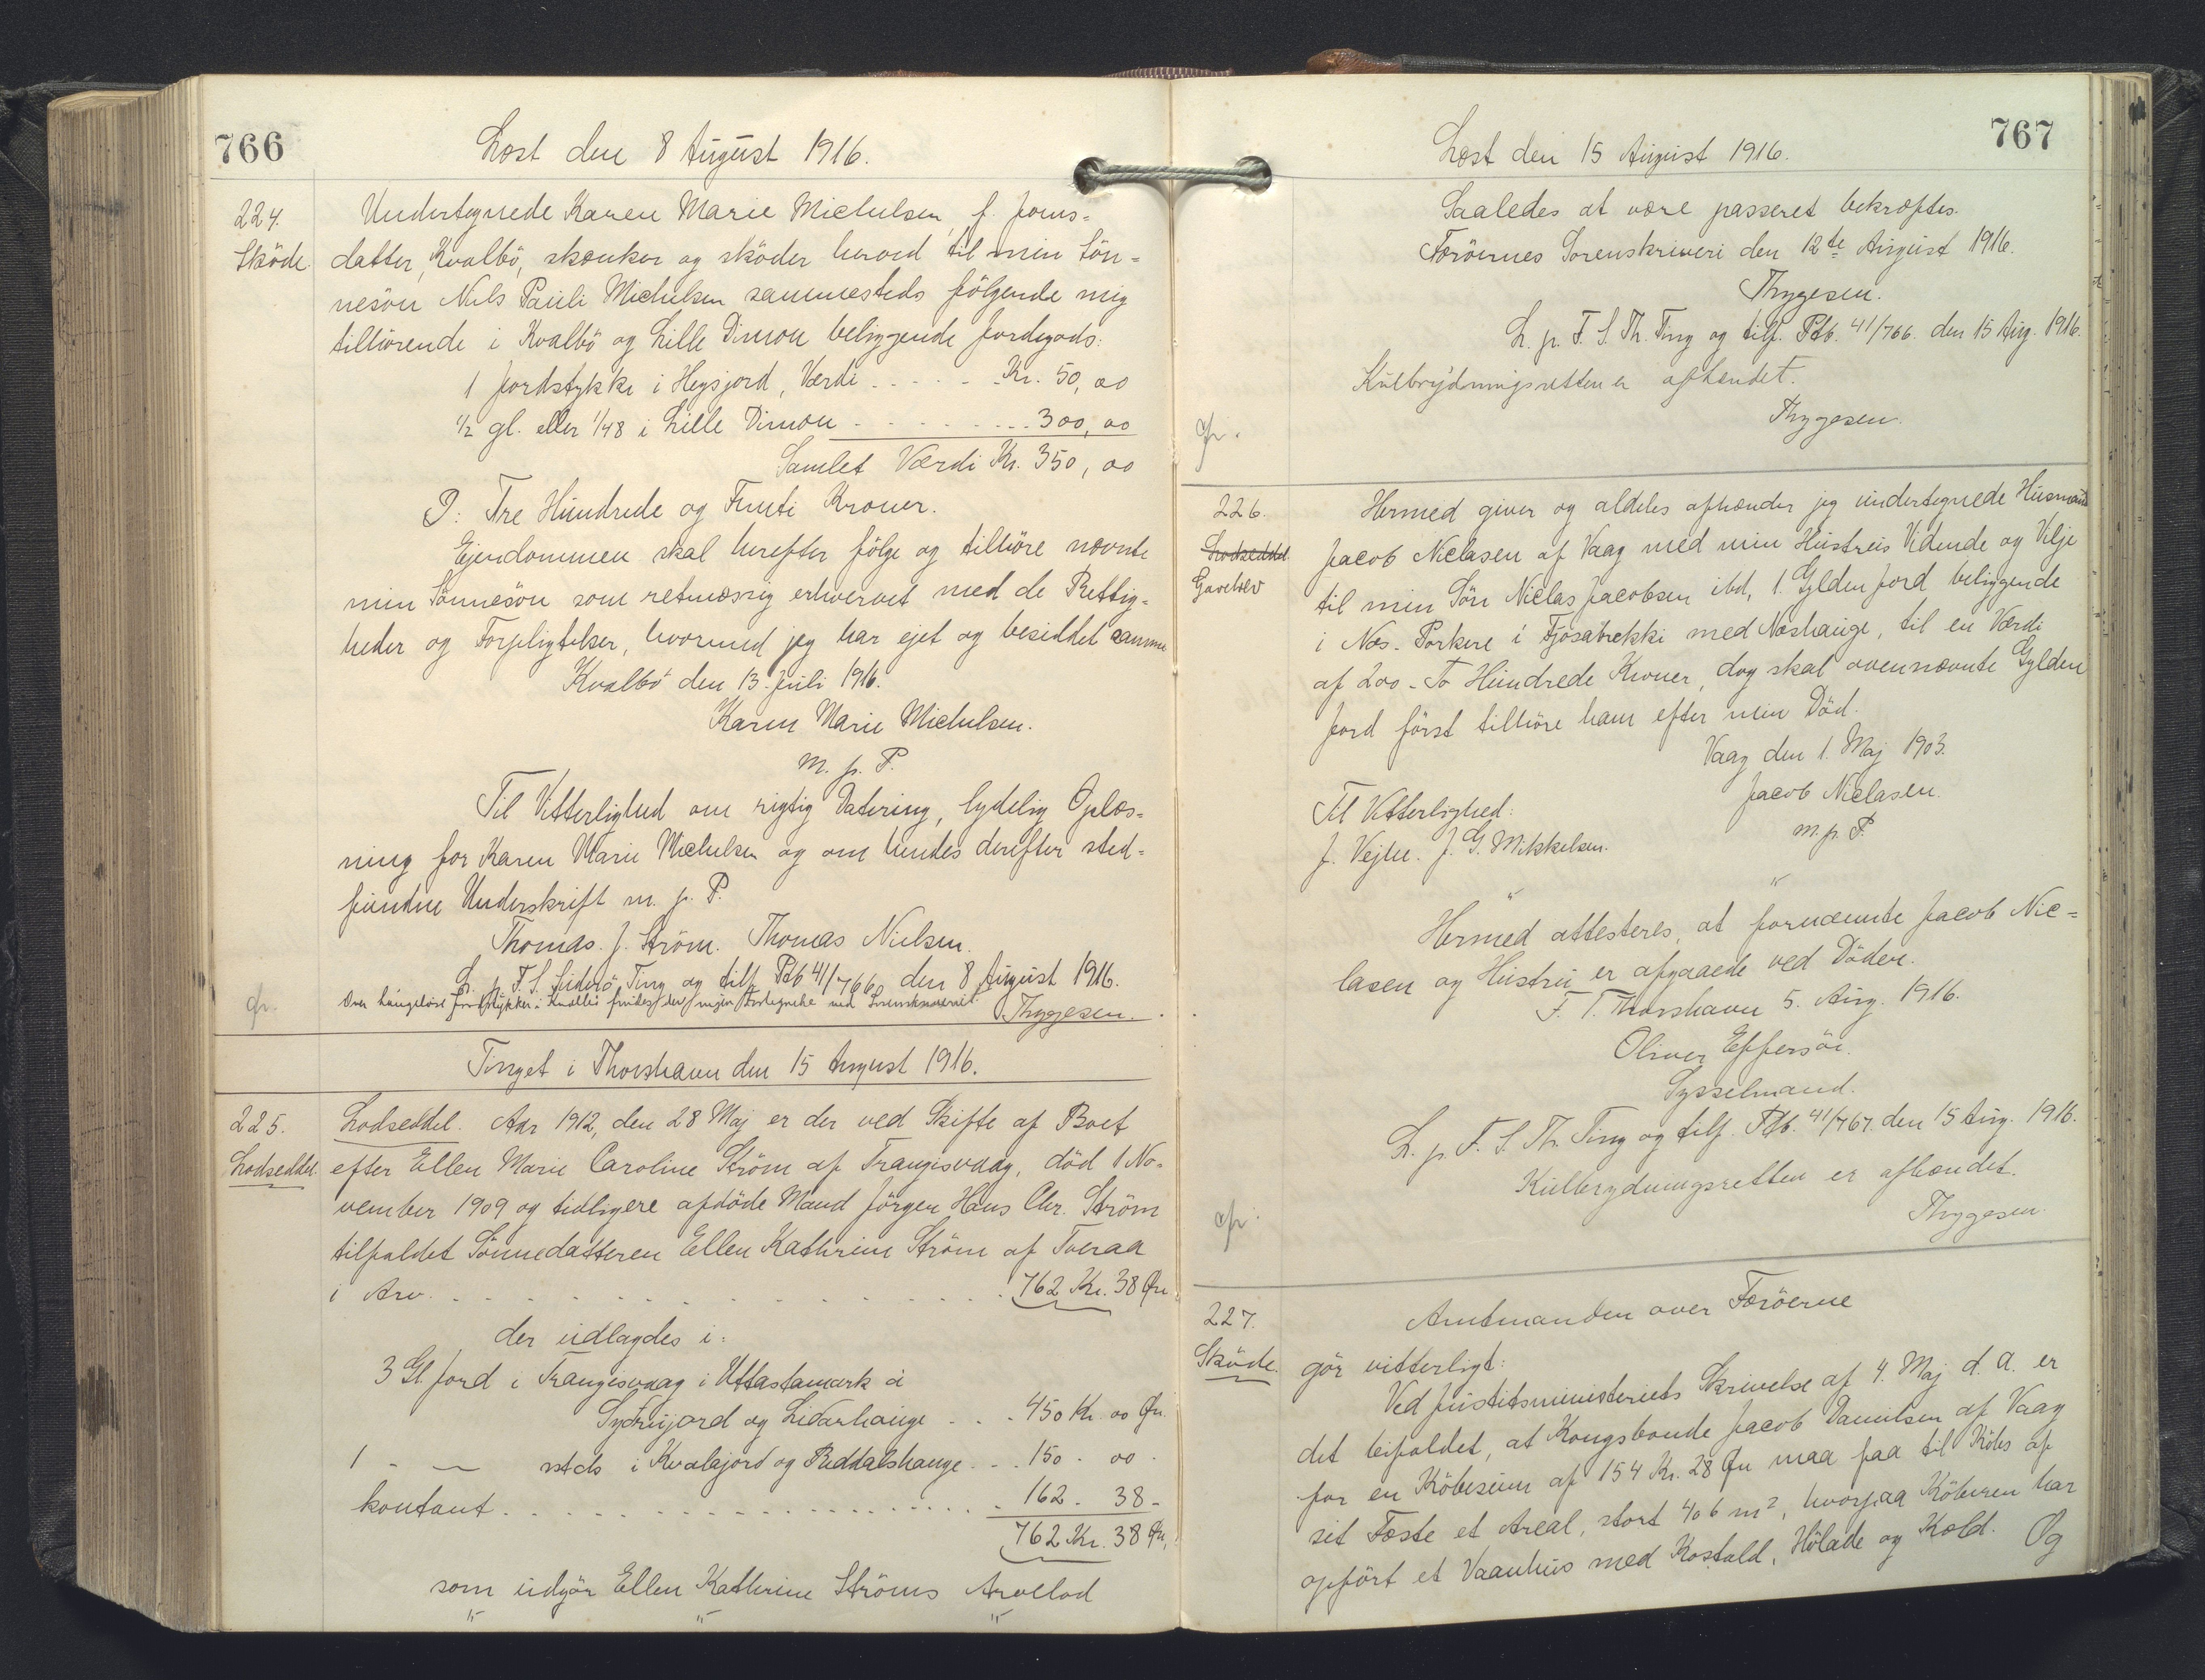 766
Læst den 8 August 1916.
224.
Sköde.
Undertegnede Karen Marie Michelsen, f. Joens=
datter, Kvalbö, skænker og sköder herved til min Sön=
nesön Niels Pauli Michelsen sammesteds fölgende mig
tilhörende i Kvalbö og Lille Dimon beliggende Jordegods:
1 Jordstykke i Heysjord, Værdi . . . . . Kr. 50,00
1/2 gl. eller 1/48 i Lille Dimon . . . . . . . . . 300,00
Samlet Værdi Kr. 350,00
I: Tre Hundrede og Femti Kroner.
Ejendommen skal herefter fölge og tilhöre nævnte
min Sönnesön som retmæssig erhvervet med de Rettig=
heder og Forpligtelser, hvormed jeg har ejet og besiddet samme
Kvalbö den 13. Juli 1916.
Karen Marie Michelsen.
m. p. P.
Til Vitterlighed om rigtig Datering, lydelig Oplæs=
ning for Karen Marie Michelsen og om hendes derefter sted=
fundne Underskrift m. p. P.
Thomas J. Ström. Thomas Nielsen.
L. p. F. S. Suderö Ting og tilf. Ptb 41/766 den 8 August 1916.
Over haugelöse Jordstykker i Kvalbö findes der ingen Fortegnelse ved Sorenskriveriet.
Thygesen.
gr.
Tinget i Thorshavn den 15 August 1916.
225.
Lodseddel.
Lodseddel. Aar 1912, den 28 Maj er der ved Skifte af Boet
efter Ellen Marie Caroline Ström af Trangisvaag, död 1 No=
vember 1909 og tidligere afdöde Mand Jörgen Hans Chr. Ström
tilfaldet Sönnedatteren Ellen Kathrine Ström af Tveraa
i Arv. . . . . . . . . . . . . . . 762 Kr. 38 Öre
der udlagdes i:
3 Gl. Jord i Trangisvaag i Uttastamark á
Sydrujord og Lidarhauge . . . 450 Kr. 00 Ör.
1 - — sstds i Kvalajord og Reddalshauge . . . 150 . 00 .
kontant . . . . . . . . . . . . . 162 . 38 -
762 Kr. 38 Ör.
som udgör Ellen Kathrine Ströms Arvelod
" " "
767
Læst den 15 August 1916.
Saaledes at være passeret bekræftes.
Færöernes Sorenskriveri den 12te August 1916.
Thygesen.
L. p. F. S. Th. Ting og tilf. Ptb. 41/766. den 15 Aug. 1916.
Kulbrydningsretten er afhændet.
Thygesen.
gr.
226.
Lodseddel
Gavebrev
Hermed giver og aldeles afhænder jeg undertegnede Husmand
Jacob Niclasen af Vaag med min Hustrus Vidende og Vilje
til min Sön Niclas Jacobsen ibd, 1. Gylden Jord beliggende
i Næs - Porkere i Fjösabrekki med Næshauge, til en Værdi
af 200 - To Hundrede Kroner, dog skal ovennævnte Gylden
Jord först tilhöre ham efter min Död.
Vaag den 1. Maj 1903.
Jacob Niclasen.
m. p. P.
Til Vitterlighed:
J. Vejhe. J. G. Mikkelsen.
" "
Hermed attesteres, at fornævnte Jacob Nic=
lasen og Hustru er afgaaede ved Döden.
F. T. Thorshavn 5. Aug. 1916.
Oliver Effersöe.
Sysselmand.
L. p. F. S. Th. Ting og tilf. Ptb. 41/767. den 15 Aug. 1916.
Kulbrydningsretten er afhændet.
Thygesen.
gr.
227.
Sköde.
Amtmanden over Færöerne
gör vitterligt:
Ved Justitsministeriets Skrivelse af 4. Maj d. A. er
det bifaldet, at Kongsbonde Jacob Danielsen af Vaag
for en Köbesum af 154 Kr. 28 Öre maa faa til Köbs af
sit Fæste et Areal, stort 406 m², hvorpaa Köberen har
opfört et Vaanhus med Kostald, Hölade og Kæld. Og